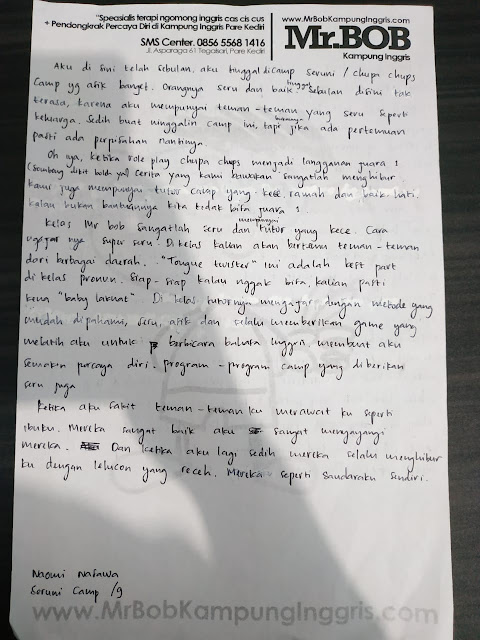 "Speasialis terapi ngomong inggris cas cis cus
+ Pendongkrak Percaya Diri di Kampung Inggris Pare Kediri
SMS Center. 0856 5568 1416
Jl. Asparaga 61 Tegalsari, Pare Kediri
www.MrBobKampungInggris.com
Mr.BOB
Kampung Inggris
Aku di sini telah sebulan, aku tinggal di camp seruni / chupa chups
Camp yg asik banget. Orangnya seru dan baik. tinggal sebulan disini tak
terasa, karena aku mempunyai teman-teman yang seru seperti
keluarga. Sedih buat ninggalin camp ini, tapi jika ada pertemuan
pasti ada perpisahan nantinya.
Oh ya, ketika role play chupa chups menjadi langganan juara 1
(Sombong dikit boleh ya) cerita yang kami bawakan sangatlah menghibur
kami juga mempunyai tutor camp yang kece, ramah dan baik hati.
kalau bukan bantuannya kita tidak bisa juara 1.
Kelas Mr bob sangatlah seru dan mempunyai tutor yang kece. Cara
ngajar nya super seru. Di kelas kalian akan bertemu teman-teman
dari berbagai daerah. "Tongue twister" ini adalah best part
di kelas pronun. Siap-siap kalau nggak bisa, kalian pasti
kena "baby laknat". Di kelas tutornya mengajar dengan metode yang
mudah dipahami, seru, asik dan selalu memberikan game yang
melatih aku untuk berbicara bahasa Inggris, membuat aku
semakin percaya diri. program-program camp yang diberikan
seru juga
Ketika aku sakit teman-teman ku merawat ku seperti
ibuku. Mereka sangat baik aku sangat menyayangi
mereka. Dan ketika aku lagi sedih mereka selalu menghibur
ku dengan lelucon yang receh. Mereka seperti saudaraku sendiri.
Naomi Nafawa
Seruni Camp /9
www.MrBobKampungInggris.com